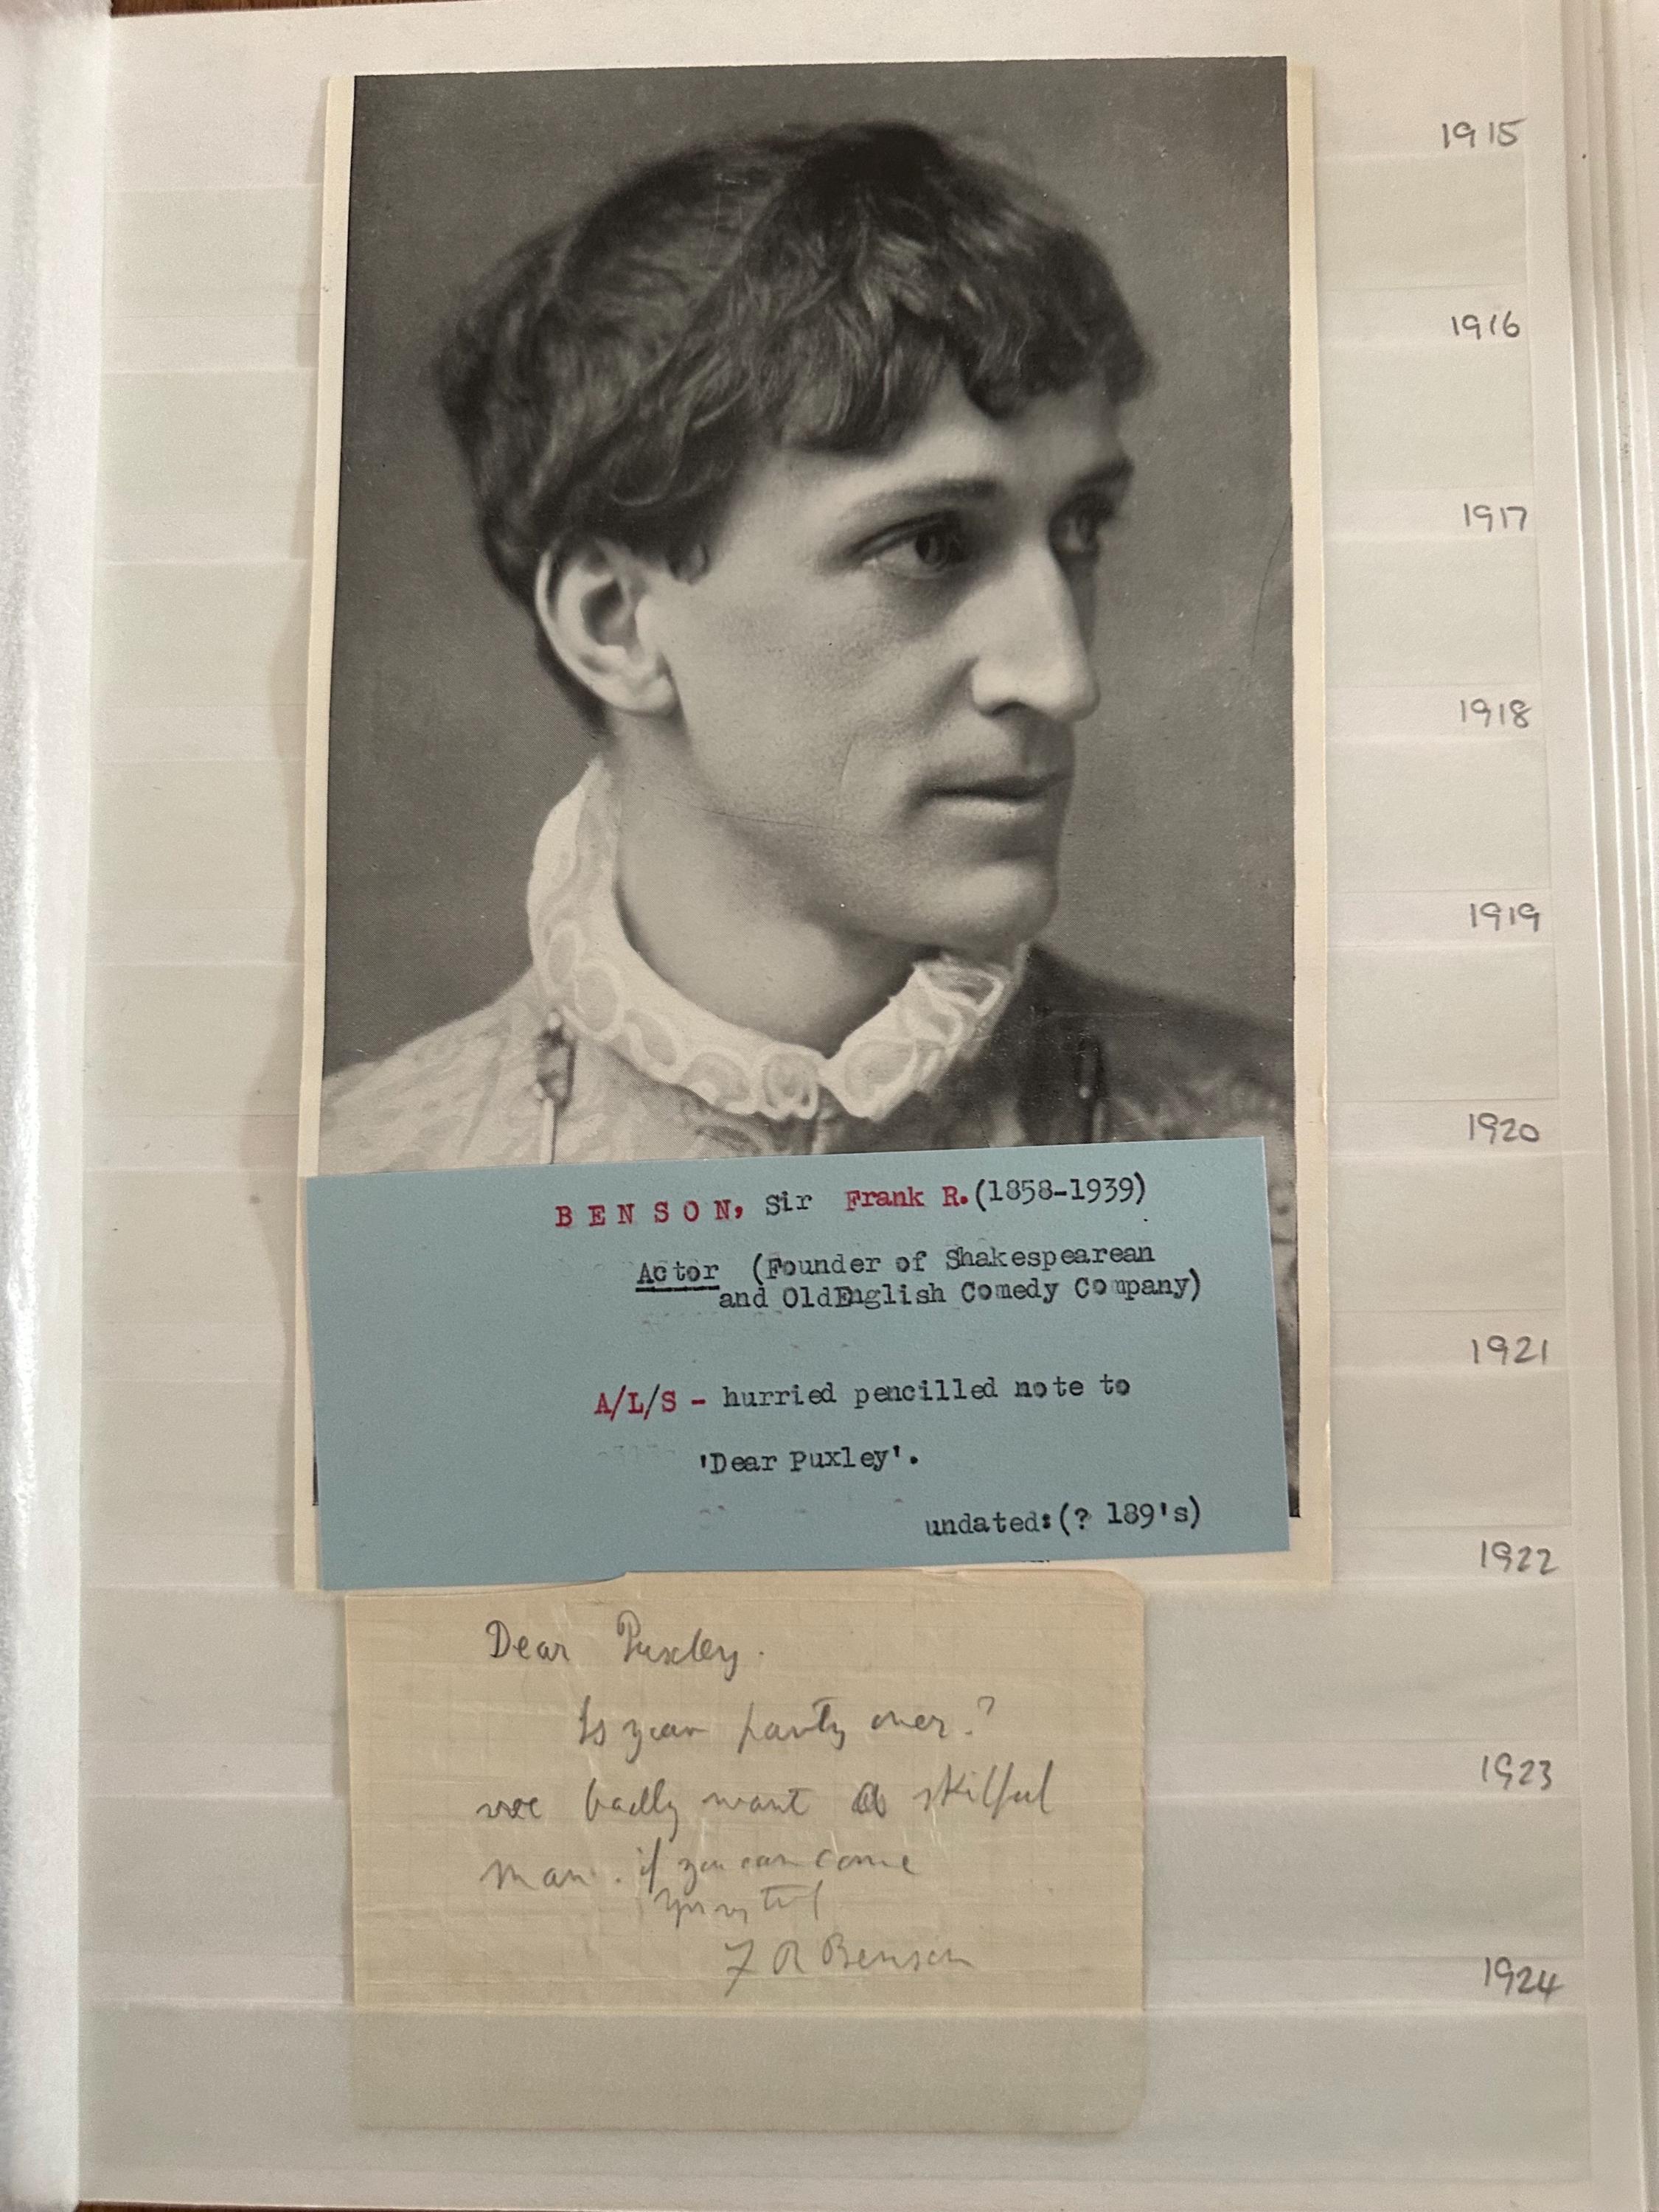 1915
1916
1917
1918
1919
1920
1921
1922
1923
1924
BENSON, Sir Frank R.(1858-1939)
Actor (Founder of Shakespearean
and OldEnglish Comedy Company)
A/L/S - hurried pencilled note to
'Dear Puxley'.
undated:(? 189's)
Dear Puxley.
Is your party over?
we badly want a skilful
man. if you can come
F R Benson